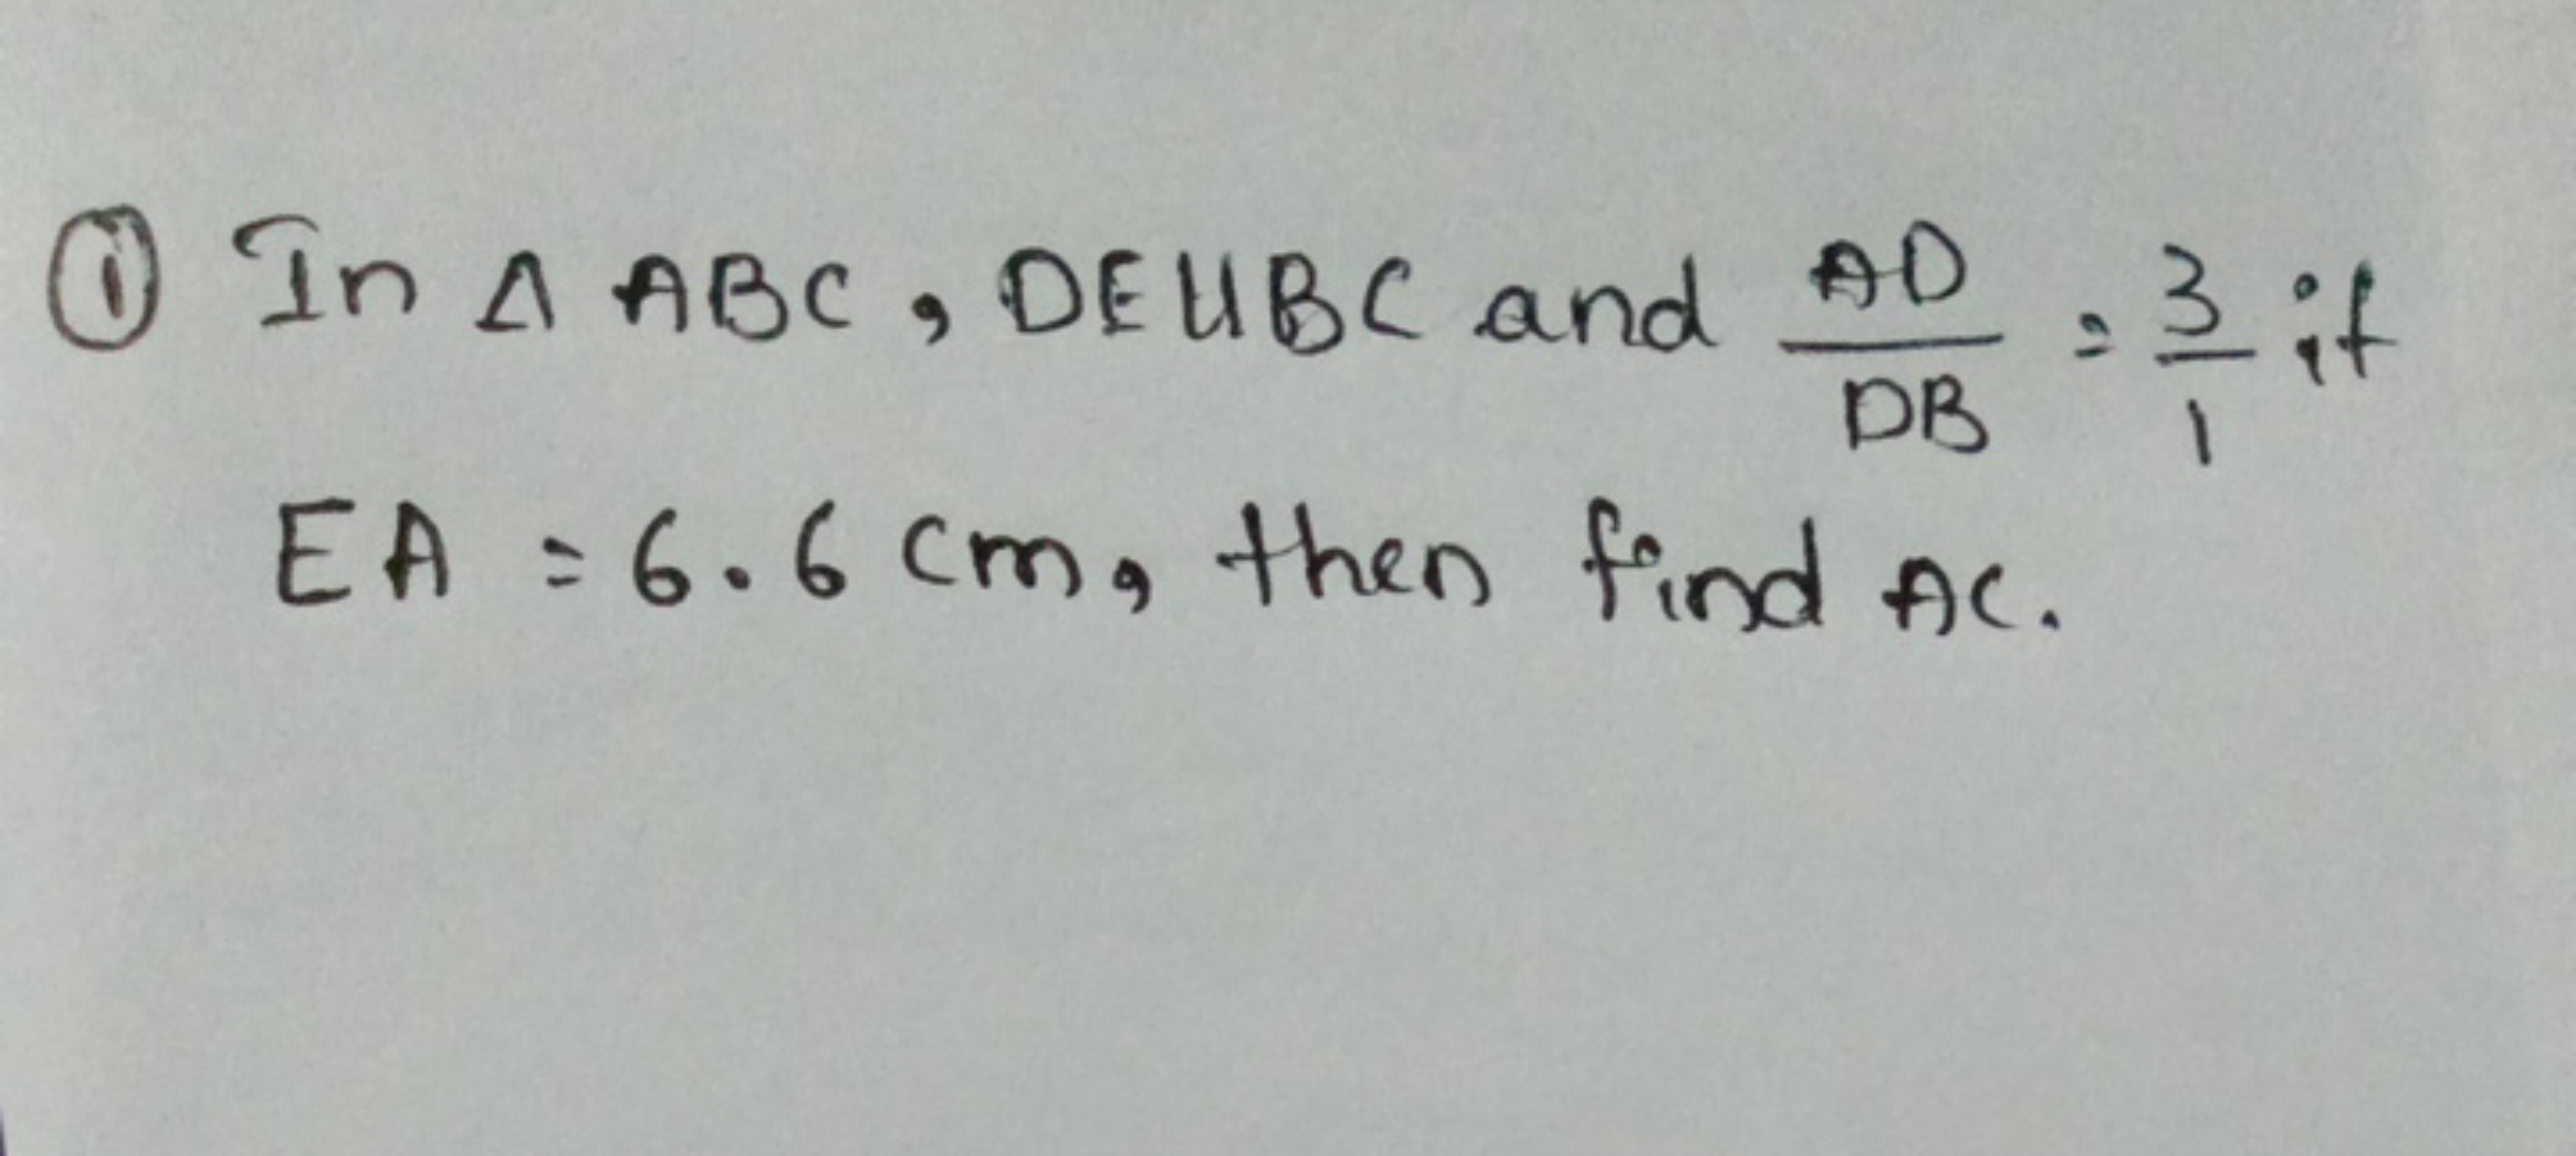 ① In Δ ABC, DE || BC and AD/DB = 3/1 if
EA = 6.6 cm, then find AC.